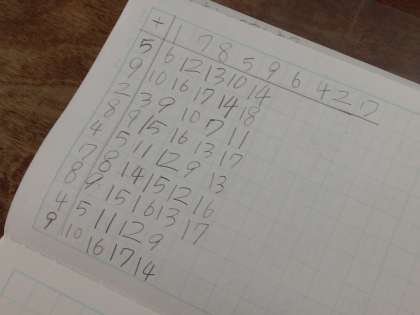 + 1 7 8 5 9 6 4 2 7
5 6 12 13 10 14
9 10 16 17 14 18
2 3 9 10 7 11
8 9 15 16 13 17
4 5 11 12 9 13
7 8 14 15 12 16
8 9 15 16 13 17
4 5 11 12 9
9 10 16 17 14